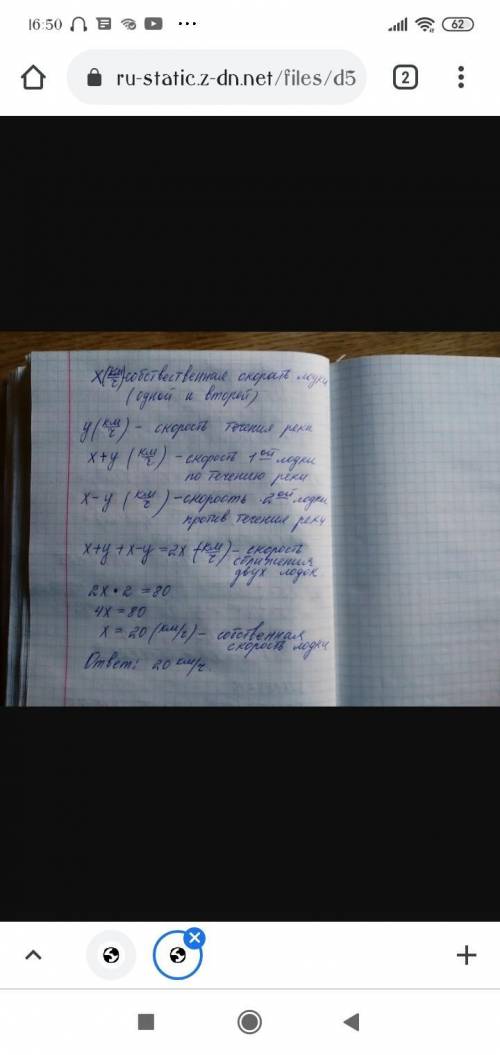 16:50
62
ru-static.z-dn.net/files/d5
2
x(км/ч) собствественная скорать лодки
(одной и второй)
y(км/ч) - скорость течения реки
x+y (км/ч) - скорость 1ой лодки
по течению реки
x-y (км/ч) - скорость 2ой лодки
против течения реки
x+y+x-y=2x (км/ч) - скорость
сближения
двух лодок
2x•2=80
4x=80
x=20 (км/ч) - собственная
скорость лодки
Ответ: 20 км/ч.